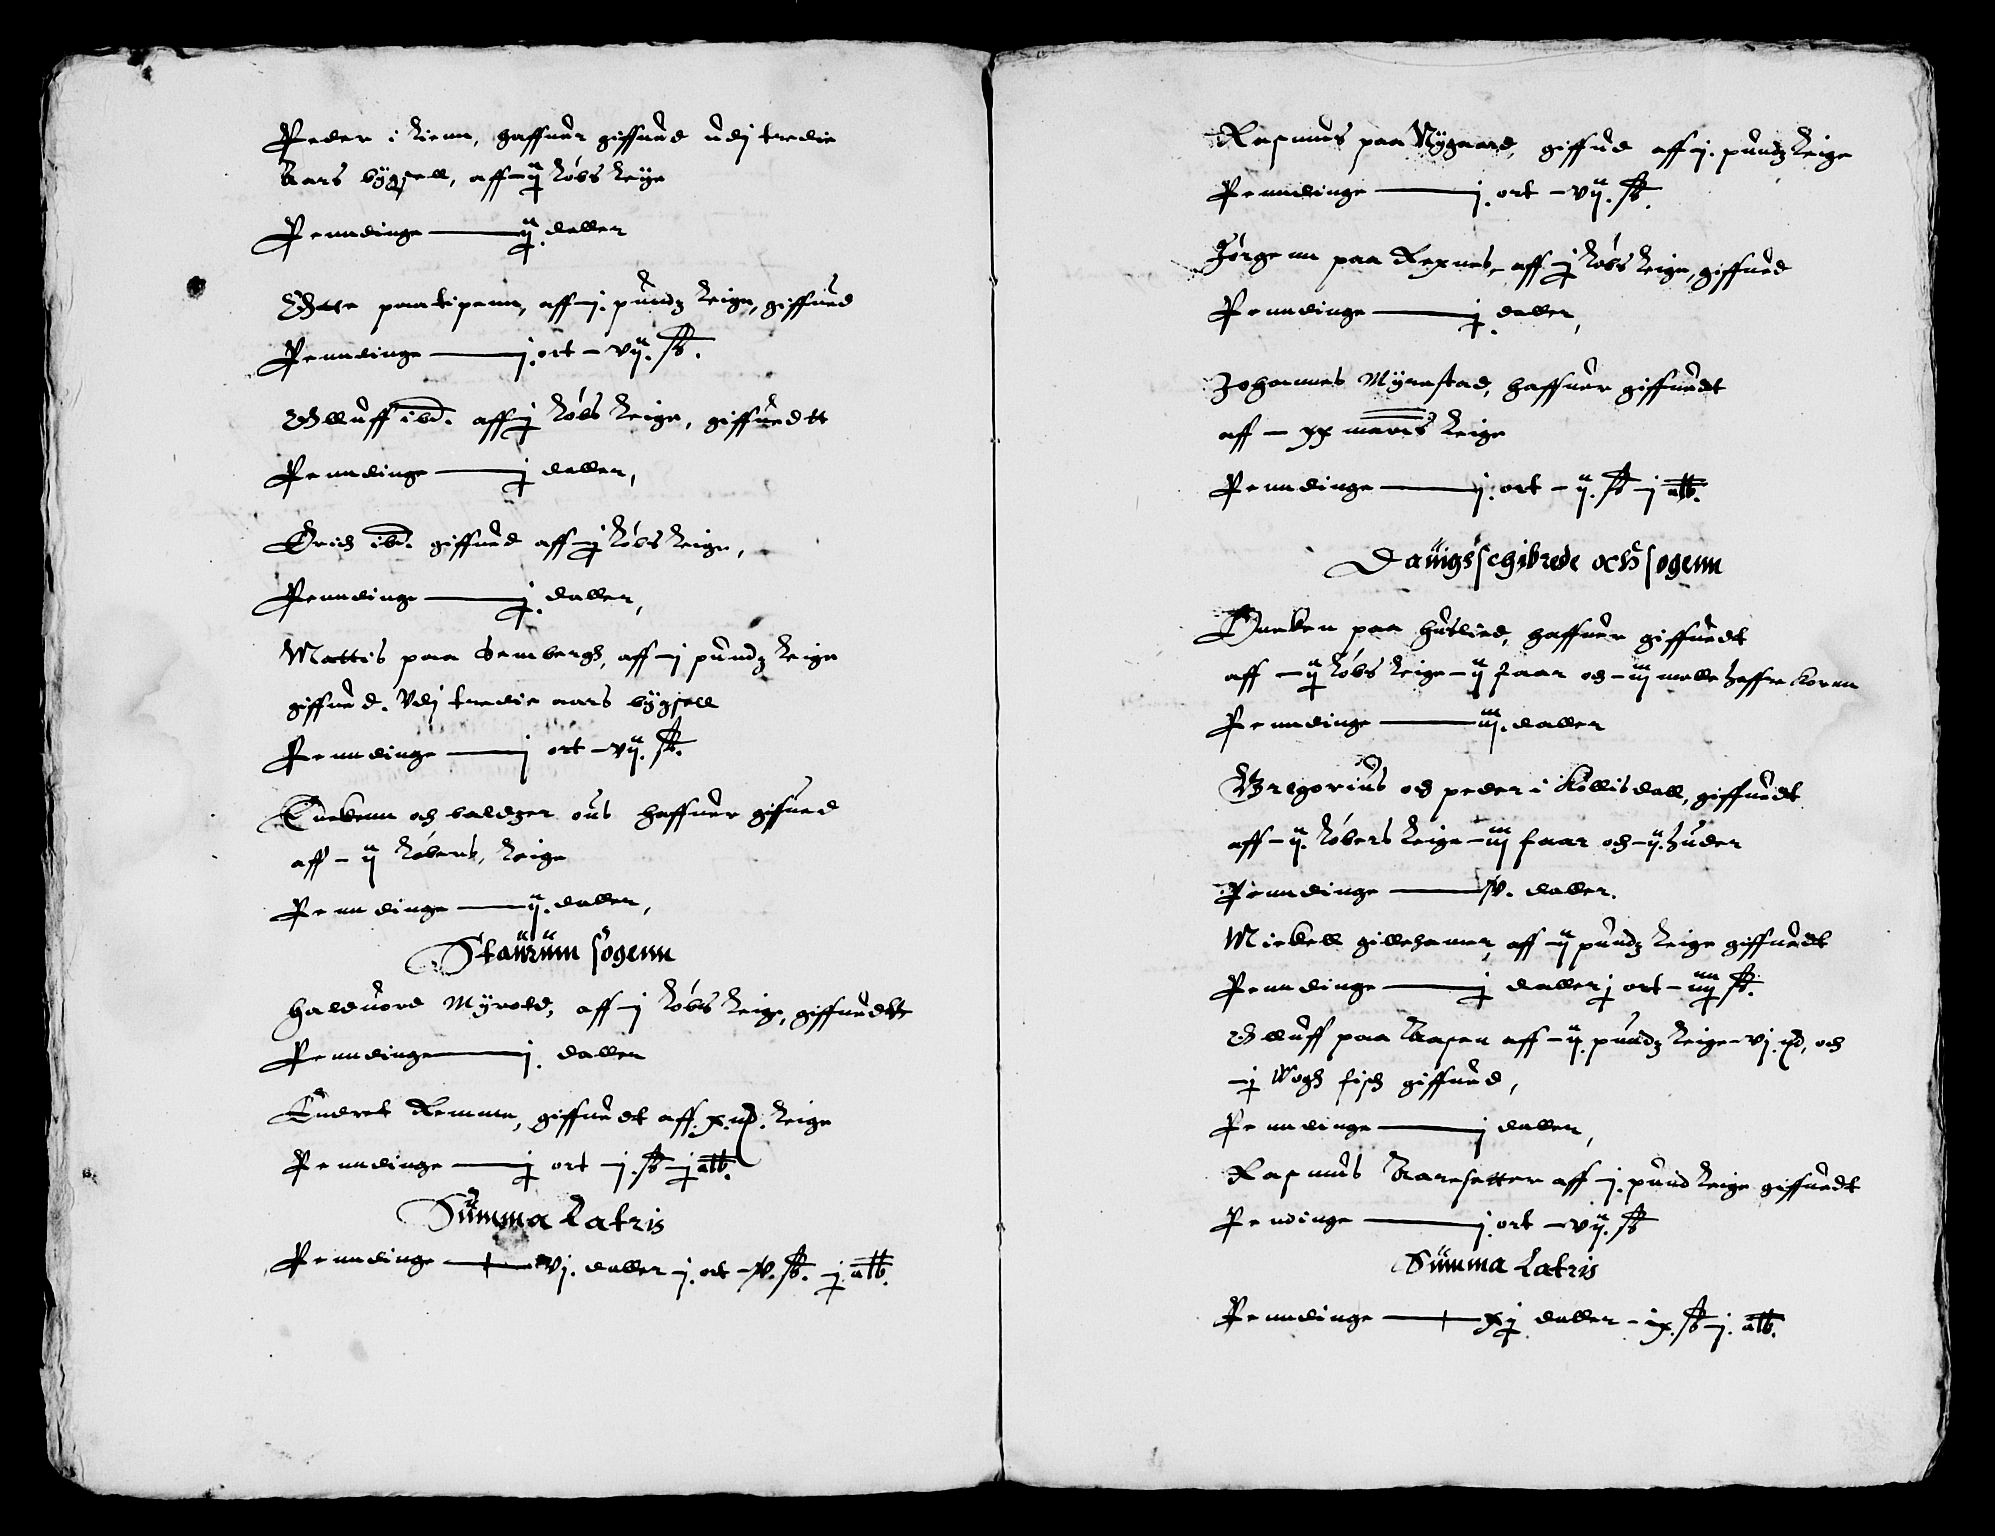 Peder i Lienn, haffuer giffued udj tredie
Aars bygsell, aff - ij Løbs Leige
Penndinge ——— ij daller
paa tipenn, aff - j. pundz Leige, giffued
Penndinge ——— j. ort - vij. sk.
Olluff ibd. aff - j Løbs Leige, giffuedtt
Penndinge ——— j daller,
Erich ibd. giffued aff - j Løbs Leige,
Penndinge ——— j. daller,
Mattis paa Sembergh, aff - j pundz Leige
giffued. Vdj tredie aars bygsell
Penndinge ——— j ort - vij. sk.
Enekenn och baldzer ous haffuer gifued
aff - ij Løbers, Leige
Penndinge ——— ij. daller,
Staurum sogenn
Halduord Myrold, aff - j Løbs Leige, giffuedtt
Penndinge ——— j. daller
Endret Remmen, giffuedt aff. x. mk. Leige
Penndinge ——— j ort - j. sk - j alb.
Summa Latris
Penndinge ——— vj. daller - j. ort - v. sk. - j. alb.
Rasmus paa Nygaard, giffued aff - j. pundz Leige
Penndinge ——— j. ort - vij. sk.
Jørgenn paa Rexnes, aff - j Løbs Leige, giffued
Penndinge ——— j daller,
Johannes Myrestad, haffuer giffuedt
aff - xx marcs Leige
Penndinge ——— j. ort - ij. sk - j alb.
Dauigs schibrede och sogenn
Eneken paa huslied, haffuer giffuedt
aff - ij Løbs Leige - ij faar och - iij melle haffre kornn
Penndinge ——— iij. daller
Gregorius och peder i Kollisdall, giffuedt
aff - ij. Løbers Leige - iij faar och - ij. huder
Penndinge ——— v. daller.
Mickell gillehamer, aff - ij pundz Leige giffuedt
Penndinge ——— j daller j ort - iiij sk.
Olluff paa Aasen aff - ij. pundz Leige - vj. mk, och
- j Wogh fisch giffued,
Penndinge ——— j daller,
Rasmus Aaresetter aff - j. pund Leige giffuedt
Pendinge ——— j. ort - vij. sk
Summa Latris
Penndinge ——— xj daller - ix. sk - j. alb.